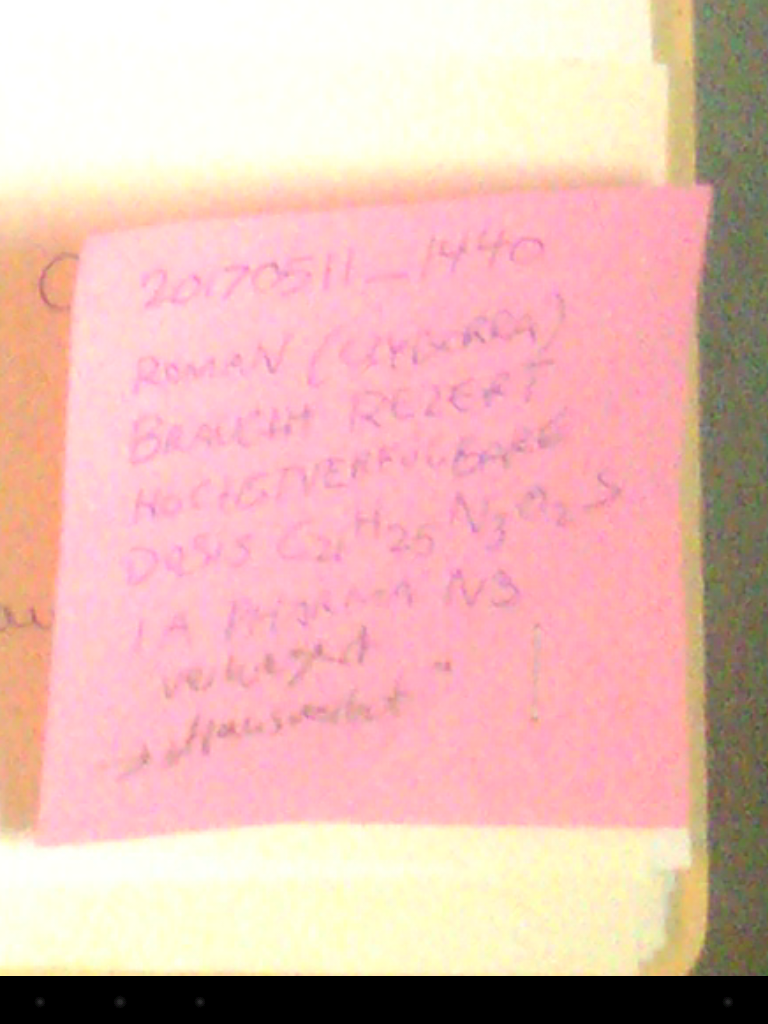 20170511_1440
ROMAN
BRAUCHT REZEPT
HÖCHSTVERFÜGBARE
DOSIS C21H25N3O2S
1A PHARMA N3
verweigert
→ "Hausverbot" !